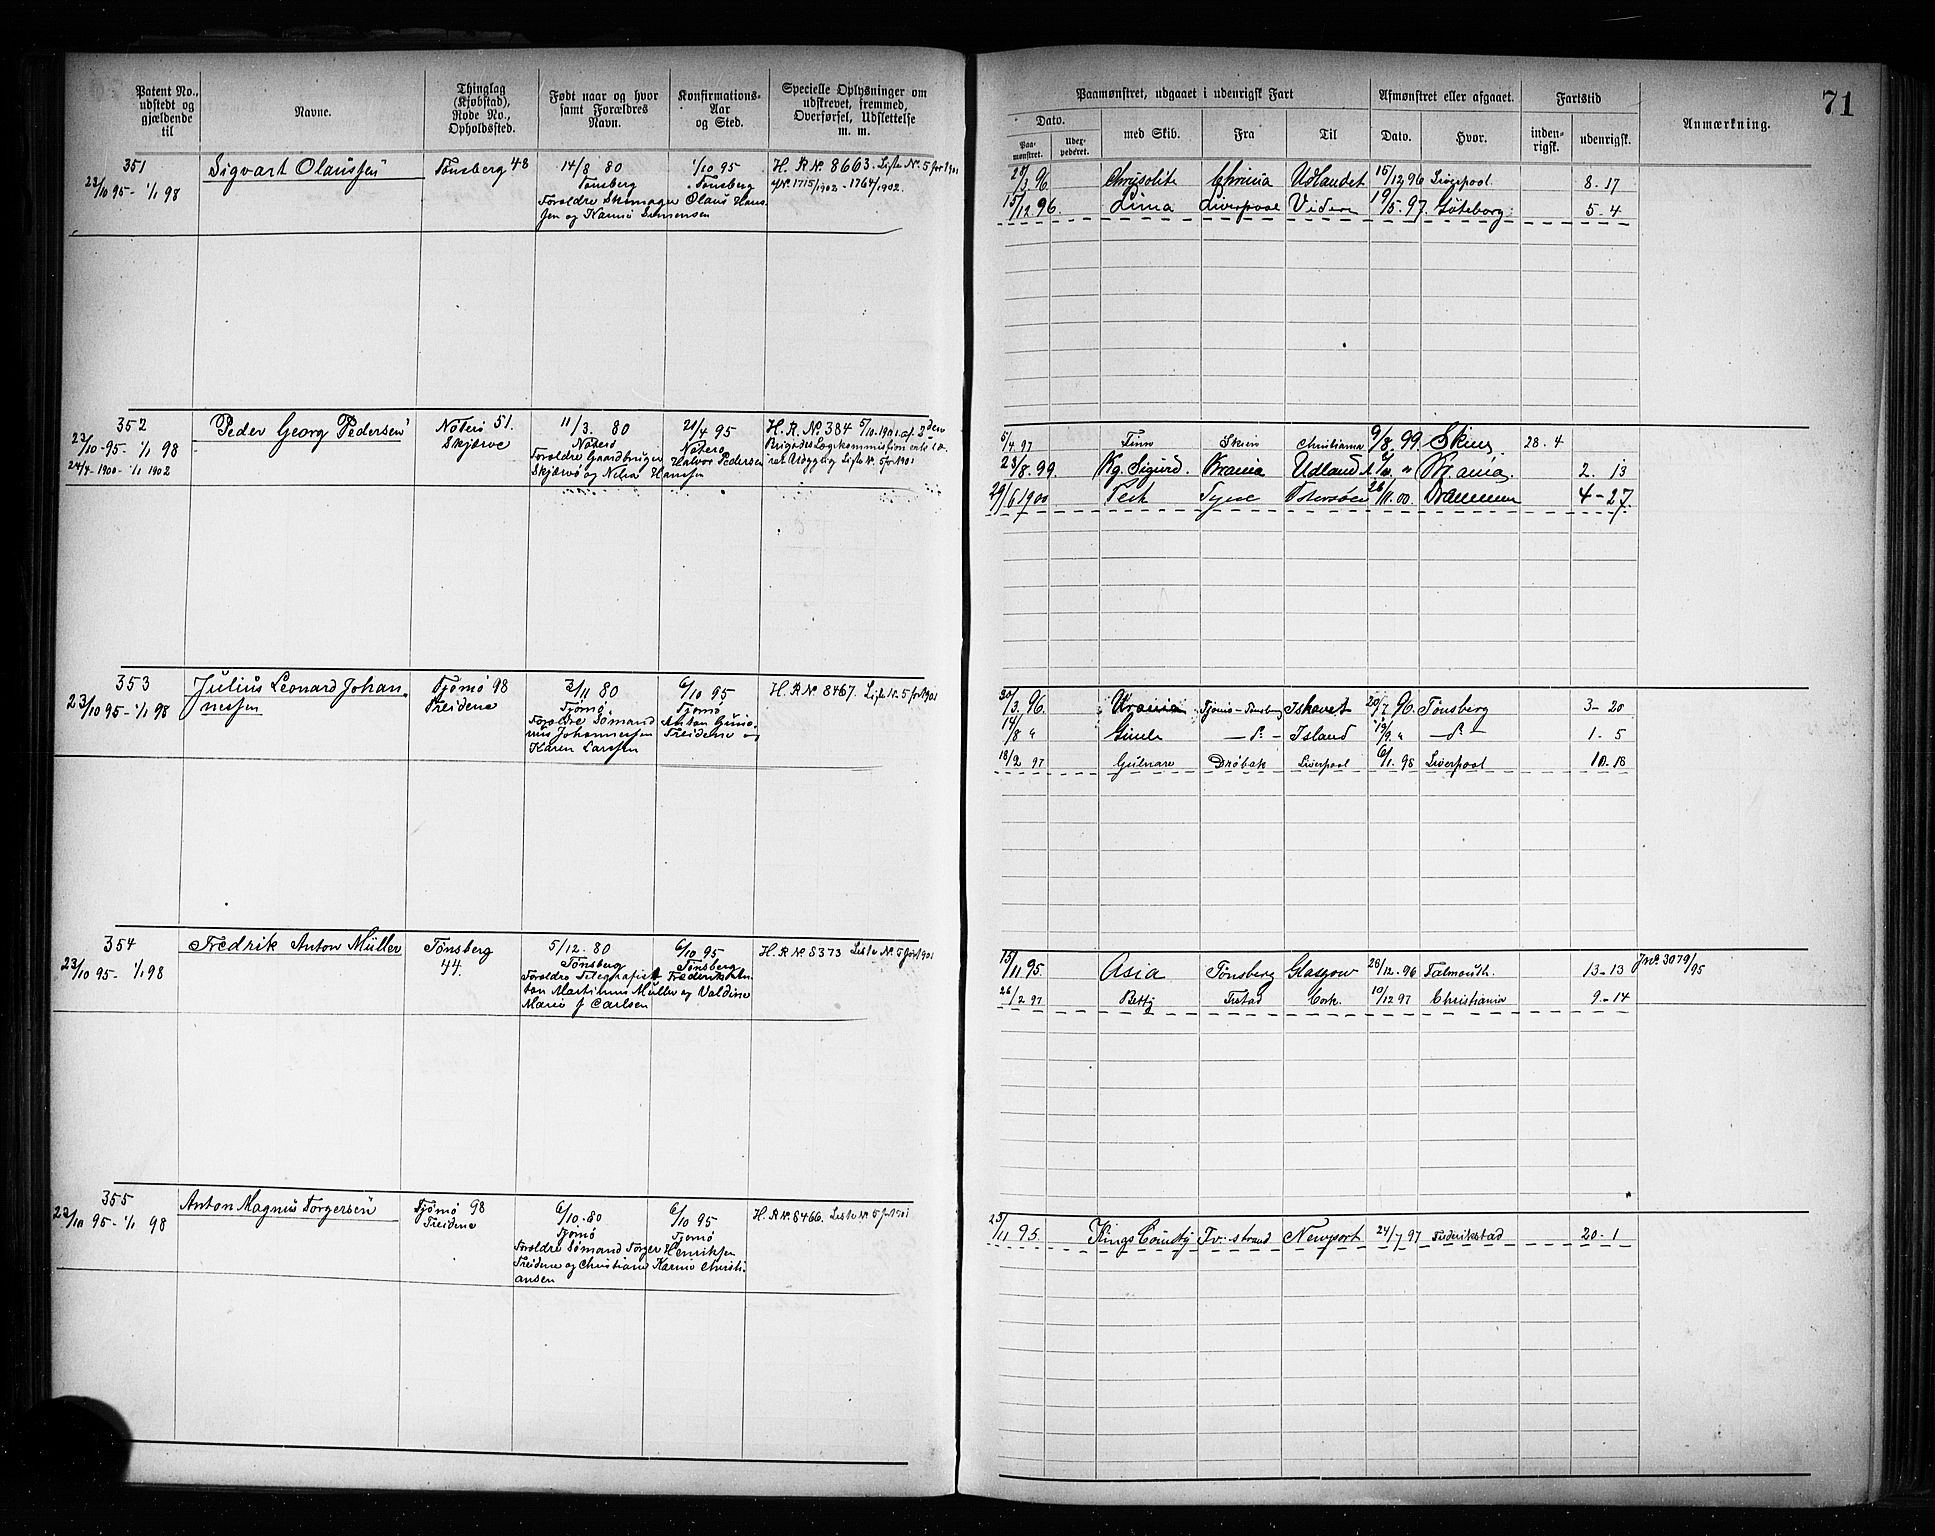 Patent No., udstedt og gjældende til
Navne.
Thinglag (Kjøbstad), Rode No., Opholdssted.
Født naar og hvor samt Forældres Navn.
Konfirmations-Aar og Sted.
Specielle Oplysninger om udskrevet, fremmed, Overførsel, Udslettelse m. m.
351
23/10 95 - 1/1 98
Sigvart Olaussen
Tønsberg 48
14/8 80
Tønsberg
1/10 95
Tønsberg
Forældre Skomager Olaus Hans-
sen og
H. R. N. 8663. Liste N. 5 for 1901
N. 1715/1902 - 1764/1902.
352
23/10 - 95 - 1/1 98
24/4 - 1900 - 1/1 1902
Peder Georg Pedersen
Nøterø 51.
Skjærsø
11/3. 80
Nøterø
21/4 95
Nøterø
Forældre Gaardbruger Halvor Pedersen
Skjærsø og Hansen
H. R. N. 384 5/10. 1901 af 2den
Liste N. 5 for 1901
353
23/10 95 - 1/1 98
Julius Leonard Johan-
nessen
Tjømø 98
Treidene
3/11 80
Tjømø.
6/10 95
Tjømø
Forældre Sømand Anton
Johannessen Treidene og
Karen Larssen
H. R. N. 8467. Liste N. 5 for 1901
354
23/10 95 - 1/1 98
Fredrik Anton Müller
Tønsberg
44.
5/12. 80
Tønsberg
6/10 95
Tønsberg
Forældre Telegrafist Frederik
Martinus Müller og Valdine
Marie f Carlsen
H. R. N. 8373 Liste N. 5 for 1901
355
23/10 95 - 1/1 98
Anton Magnus Torgersen
Tjømø 98
Treidene
6/10 - 80
Tjømø
6/10 95
Tjømø
Forældre Sømand Torger Henriksen
Treidene og Christiane Karine Christi-
ansen
H. R. N. 8466. Liste N. 5 for 1901
71
Paamønstret, udgaaet i udenrigsk Fart
Afmønstret eller afgaaet.
Fartstid
Anmærkning.
Dato.
Paa-mønstret.
med Skib.
Fra
Til
Dato.
Hvor.
inden-rigsk.
udenrigsk.
27/3 96 Chrysolite Chrania Udlandet 15/12 96 Liverpool. 8 - 17
15/12 96. Lima Liverpool 19/5 - 97. Gøteborg. 5 - 4
5/4 97 Skien Christiania 9/8 99. Skien 28 - 4
23/8. 99. Kg. Sigurd. Krania Udland Krania. 2. 13
29/6 1900 Tyne Østersøen 26/11. 00. Drammen 4 - 27.
30/3. 96. Urania Tjømø - Tønsberg Ishavet 96. Tønsberg 3 - 20
14/8 " Gimle - D° - Island 19/9. " - D° - 1 - 5
18/2 97 Gulnare Drøbak Liverpool 6/1. 98 Liverpool 10 - 18
15/11 95. Asia Tønsberg Glasgow 28/12. 96 Falmouth. 13 - 13 Jno. 3079/95
26/2 97 Betty Fr.stad Cork. 10/12 97 Christiania 9 - 14
25/11 95. Kings County Fr. strand Newport 24/7 97 Frederikstad 20 - 1